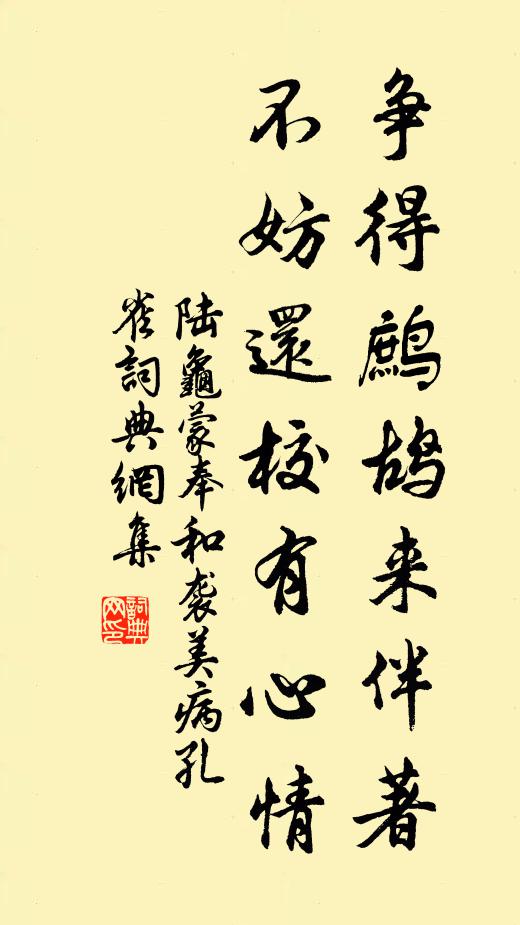 争得鷓鴣来伴著
不妨還校有心情
陆龜蒙奉和袭美病孔
雀詞典網集
詞典网印